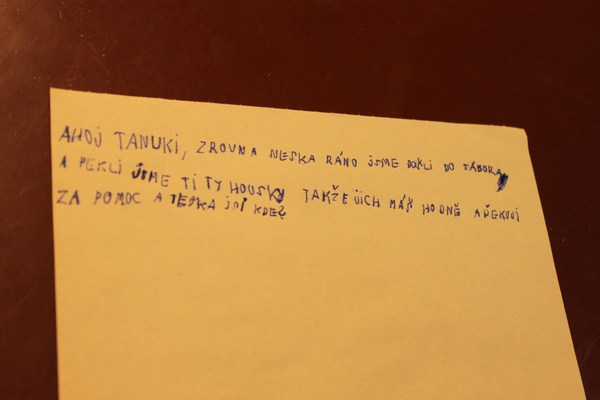 AHOJ TANUKI, ZROVNA NESKA RÁNO JSME DOŠLI DO TÁBORA
A PEKLI JSME TI TY HOUSKY TAKŽE JICH MÁŠ HODNĚ A DĚKUJI
ZA POMOC A TEĎKA JDI KDE?